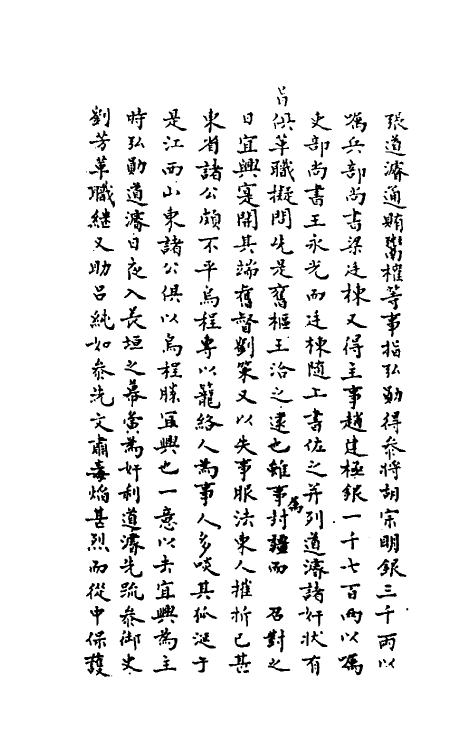 張道濬通賄鬻權等事指弘勛得參將胡宗明銀三千兩以
囑兵部尚書梁廷棟又得主事趙建極銀一千七百兩以囑
吏部尚書王永光而廷棟隨上書佐之并列道濬諸奸狀有
旨俱革職擬問先是舊樞王洽之逮也雖事屬封疆而 召對之
日宜興寔開其端舊督劉策又以失事服法東人摧折已甚
東省諸公頗不平烏程專以籠絡人為事人多啖其狐涎于
是江西山東諸公俱以烏程勝宜興也一意以去宜興為主
時弘勛道濬日夜入長垣之幕實為奸利道濬先疏參御史
劉芳革職繼又助呂純如參先文肅毒焰甚烈而從中保護